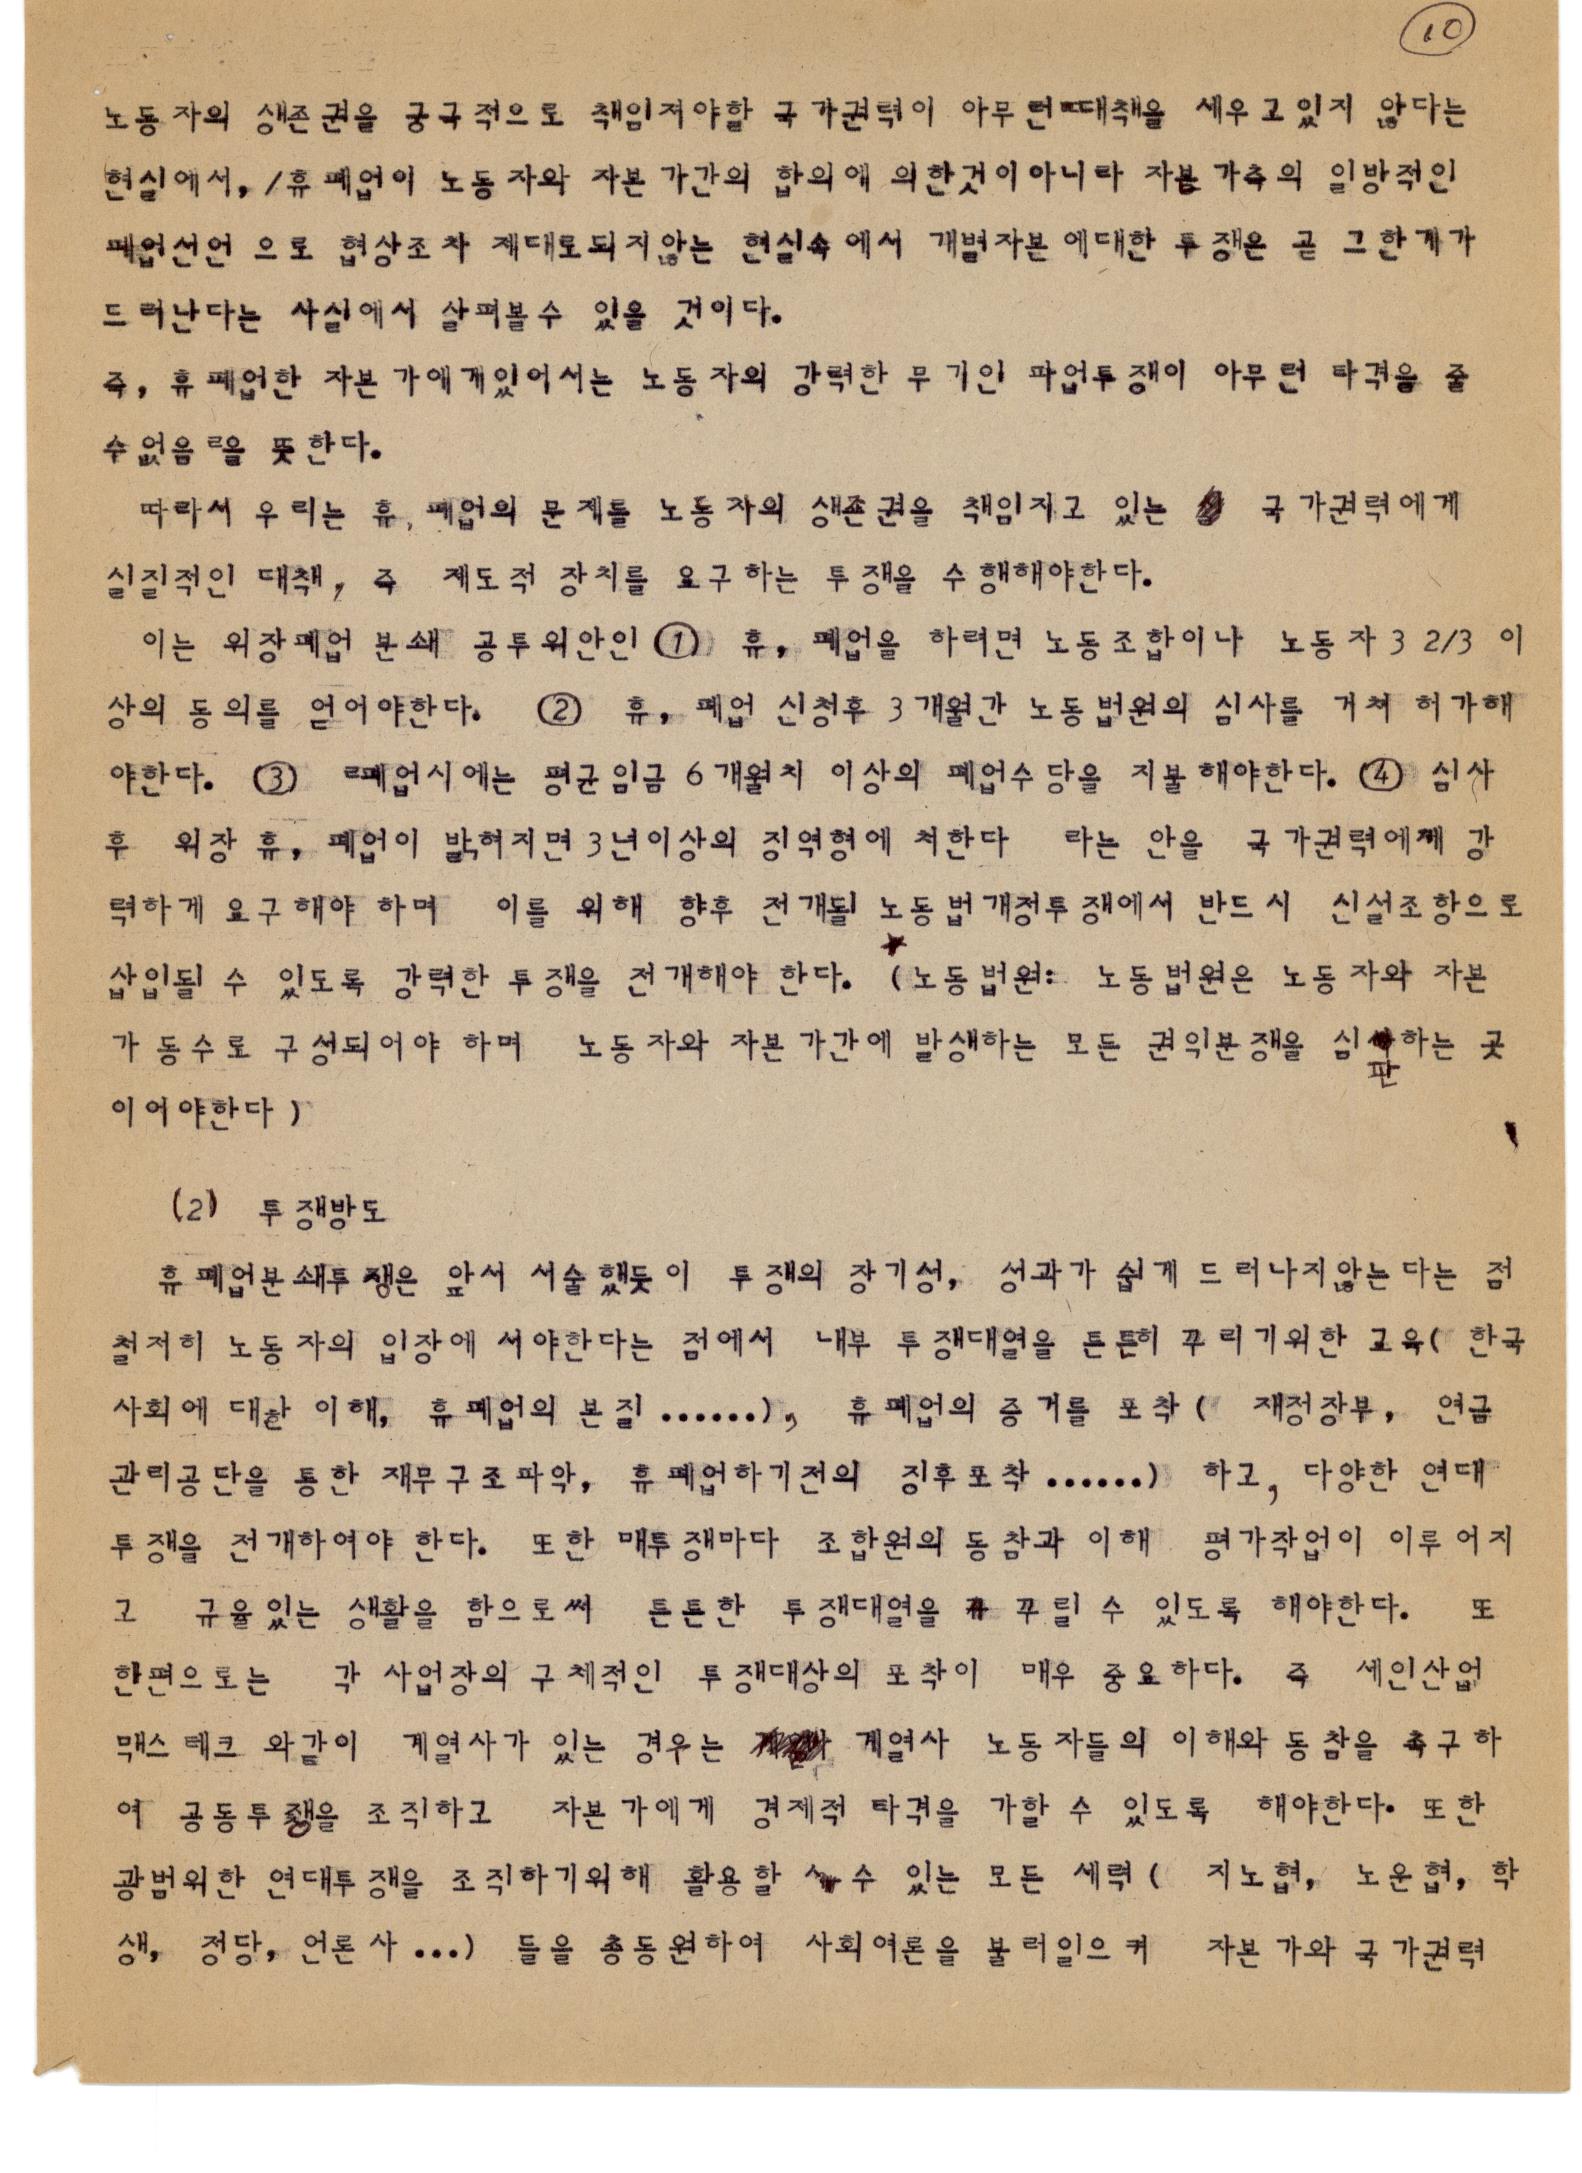 10
노동자의 생존권을 궁극적으로 책임져야할 국가권력이 아무런 대책을 세우고있지 않다는
현실에서, /휴폐업이 노동자와 자본가간의 합의에 의한것이아니라 자본가측의 일방적인
폐업선언 으로 협상조차 제대로되지않는 현실속에서 개별자본에대한 투쟁은 곧 그한계가
드러난다는 사실에서 살펴볼수 있을 것이다.
즉, 휴폐업한 자본가에게있어서는 노동자의 강력한 무기인 파업투쟁이 아무런 타격을 줄
수없음을 뜻한다.
따라서 우리는 휴, 폐업의 문제를 노동자의 생존권을 책임지고 있는 국가권력에게
실질적인 대책, 즉 제도적 장치를 요구하는 투쟁을 수행해야한다.
이는 위장폐업 분쇄 공투위안인 ① 휴, 폐업을 하려면 노동조합이나 노동자3 2/3 이
상의 동의를 얻어야한다. ② 휴, 폐업 신청후 3개월간 노동법원의 심사를 거쳐 허가해
야한다. ③ 폐업시에는 평균임금 6개월치 이상의 폐업수당을 지불해야한다. ④ 심사
후 위장 휴, 폐업이 밝혀지면 3년이상의 징역형에 처한다 라는 안을 국가권력에게 강
력하게 요구해야 하며 이를 위해 향후 전개될 노동법개정투쟁에서 반드시 신설조항으로
삽입될 수 있도록 강력한 투쟁을 전개해야 한다. (노동법원: 노동법원은 노동자와 자본
가 동수로 구성되어야 하며 노동자와 자본가간에 발생하는 모든 권익분쟁을 심판하는 곳
이어야한다)
(2) 투쟁방도
휴폐업분쇄투쟁은 앞서 서술했듯이 투쟁의 장기성, 성과가 쉽게 드러나지않는다는 점
철저히 노동자의 입장에 서야한다는 점에서 내부 투쟁대열을 튼튼히 꾸리기위한 교육( 한국
사회에 대한 이해, 휴폐업의 본질 ......), 휴폐업의 증거를 포착( 재정장부, 연금
관리공단을 통한 재무구조파악, 휴폐업하기전의 징후포착 ......) 하고, 다양한 연대
투쟁을 전개하여야 한다. 또한 매투쟁마다 조합원의 동참과 이해 평가작업이 이루어지
고 규율있는 생활을 함으로써 튼튼한 투쟁대열을 꾸릴 수 있도록 해야한다. 또
한편으로는 각 사업장의 구체적인 투쟁대상의 포착이 매우 중요하다. 즉 세인산업
맥스테크 와같이 계열사가 있는 경우는 계열사 노동자들의 이해와 동참을 촉구하
여 공동투쟁을 조직하고 자본가에게 경제적 타격을 가할 수 있도록 해야한다. 또한
광범위한 연대투쟁을 조직하기위해 활용할 수 있는 모든 세력( 지노협, 노운협, 학
생, 정당, 언론사 ...) 들을 총동원하여 사회여론을 불러일으켜 자본가와 국가권력